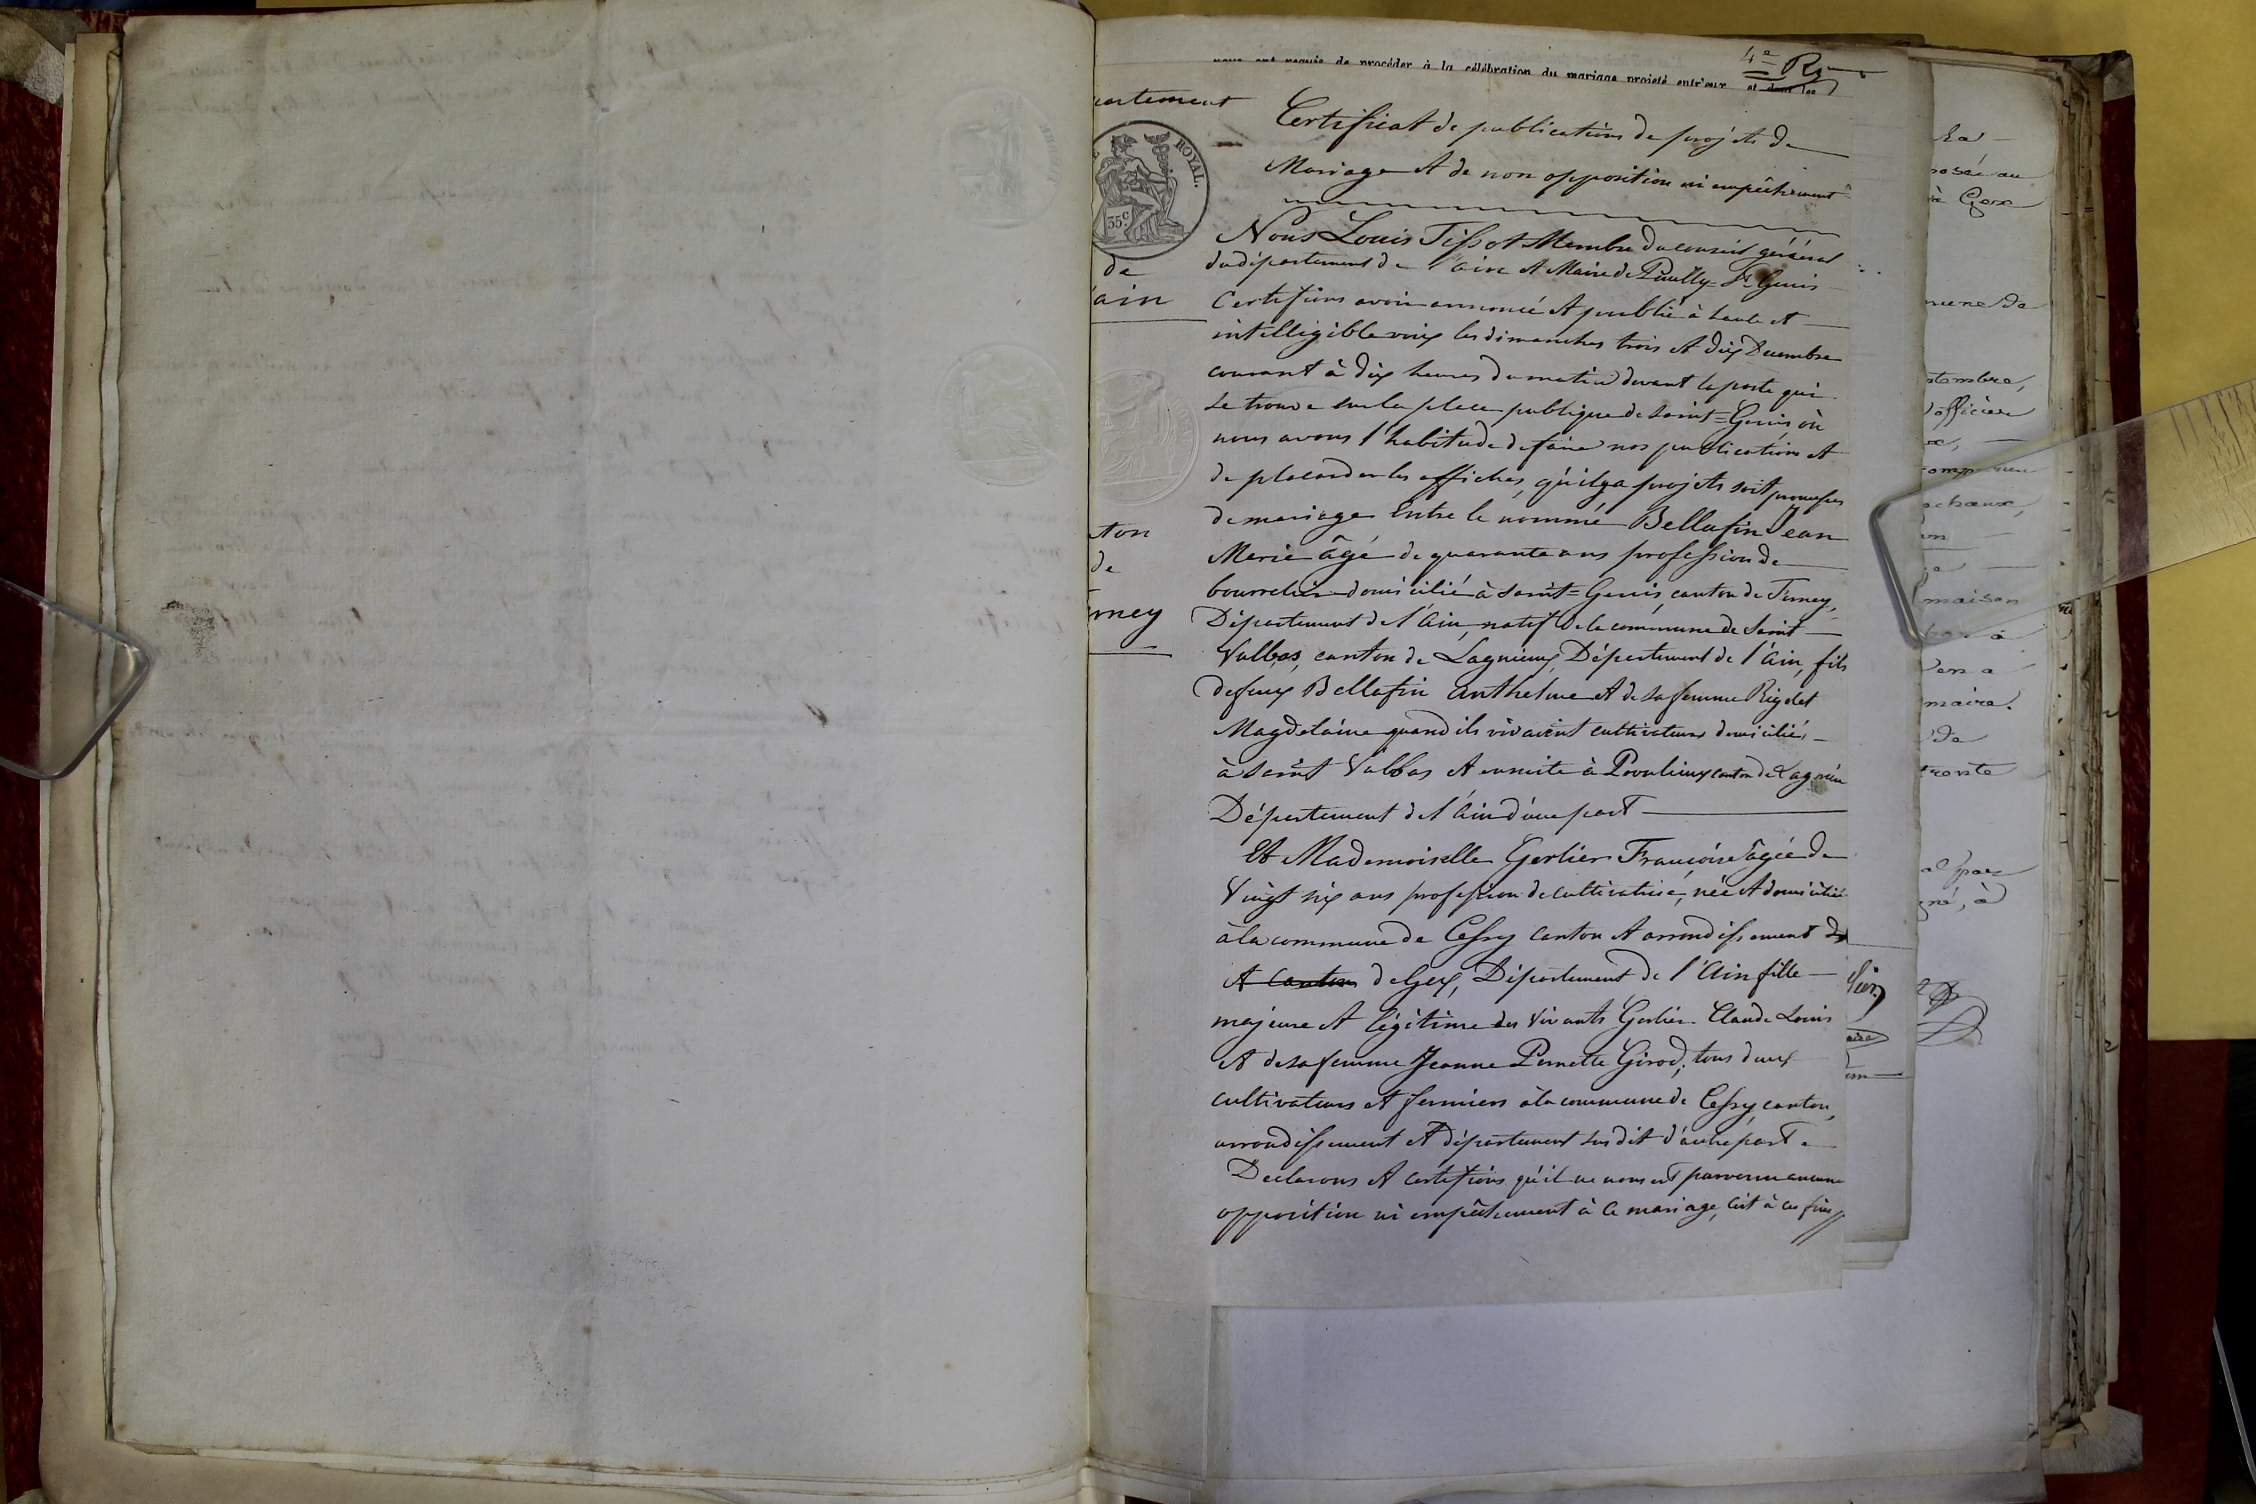 nous ont requis de procéder à la célébration du mariage projeté entr'eux et dont les
4e Rg
partement
ROYAL.
35c
de
ain
ton
de
rney
Certificat de publications de projets de
Mariage et de non opposition ni empêchement
Nous Louis Tissot Membre du conseil général
du département de l'ain et Maire de Pouilly-St Genis
Certifions avoir annoncé et publié à haute et
intelligible voix les dimanches trois et dix Decembre
courant à dix heures du matin devant la porte qui
se trouve sur la place publique de saint=Genis où
nous avons l'habitude de faire nos publications et
de placarder les affiches, qu'il y a projets soit promesses
de mariage Entre le nommé Bellafin Jean
Marie âgé de quarante ans profession de
bourrelier domicilié à saint=Genis, canton de Ferney,
Département de l'Ain, natif de la commune de Saint
Vulbas, canton de Lagnieux, Département de l'Ain, fils
defeux Bellafin Anthelme et de sa femme Rigolet
Magdelaine quand ils vivaient cultivateurs domiciliés
à saint Vulbas et ensuite à Proulieux canton de Lagnieu
Département de l'Ain d'une part
Et Mademoiselle Gerlier Françoise âgée de
Vingt six ans profession de cultivatrice, née et domiciliée
à la commune de Cessy canton et arrondissement de
et canton de Gex, Département de l'Ain fille
majeure et légitime des vivants Gerlier Claude Louis
et de sa femme Jeanne Pernette Girod, tous deux
cultivateurs et fermiers à la commune de Cessy, canton,
arrondissement et département susdit d'autre part
Declarons et certifions qu'il ne nous est parvenu aucune
opposition ni empêchement à ce mariage, c'est à ces fins
la
posée au
à Gex
mune de
tembre,
officier
maison
maire.
de
trente
al par
né, à